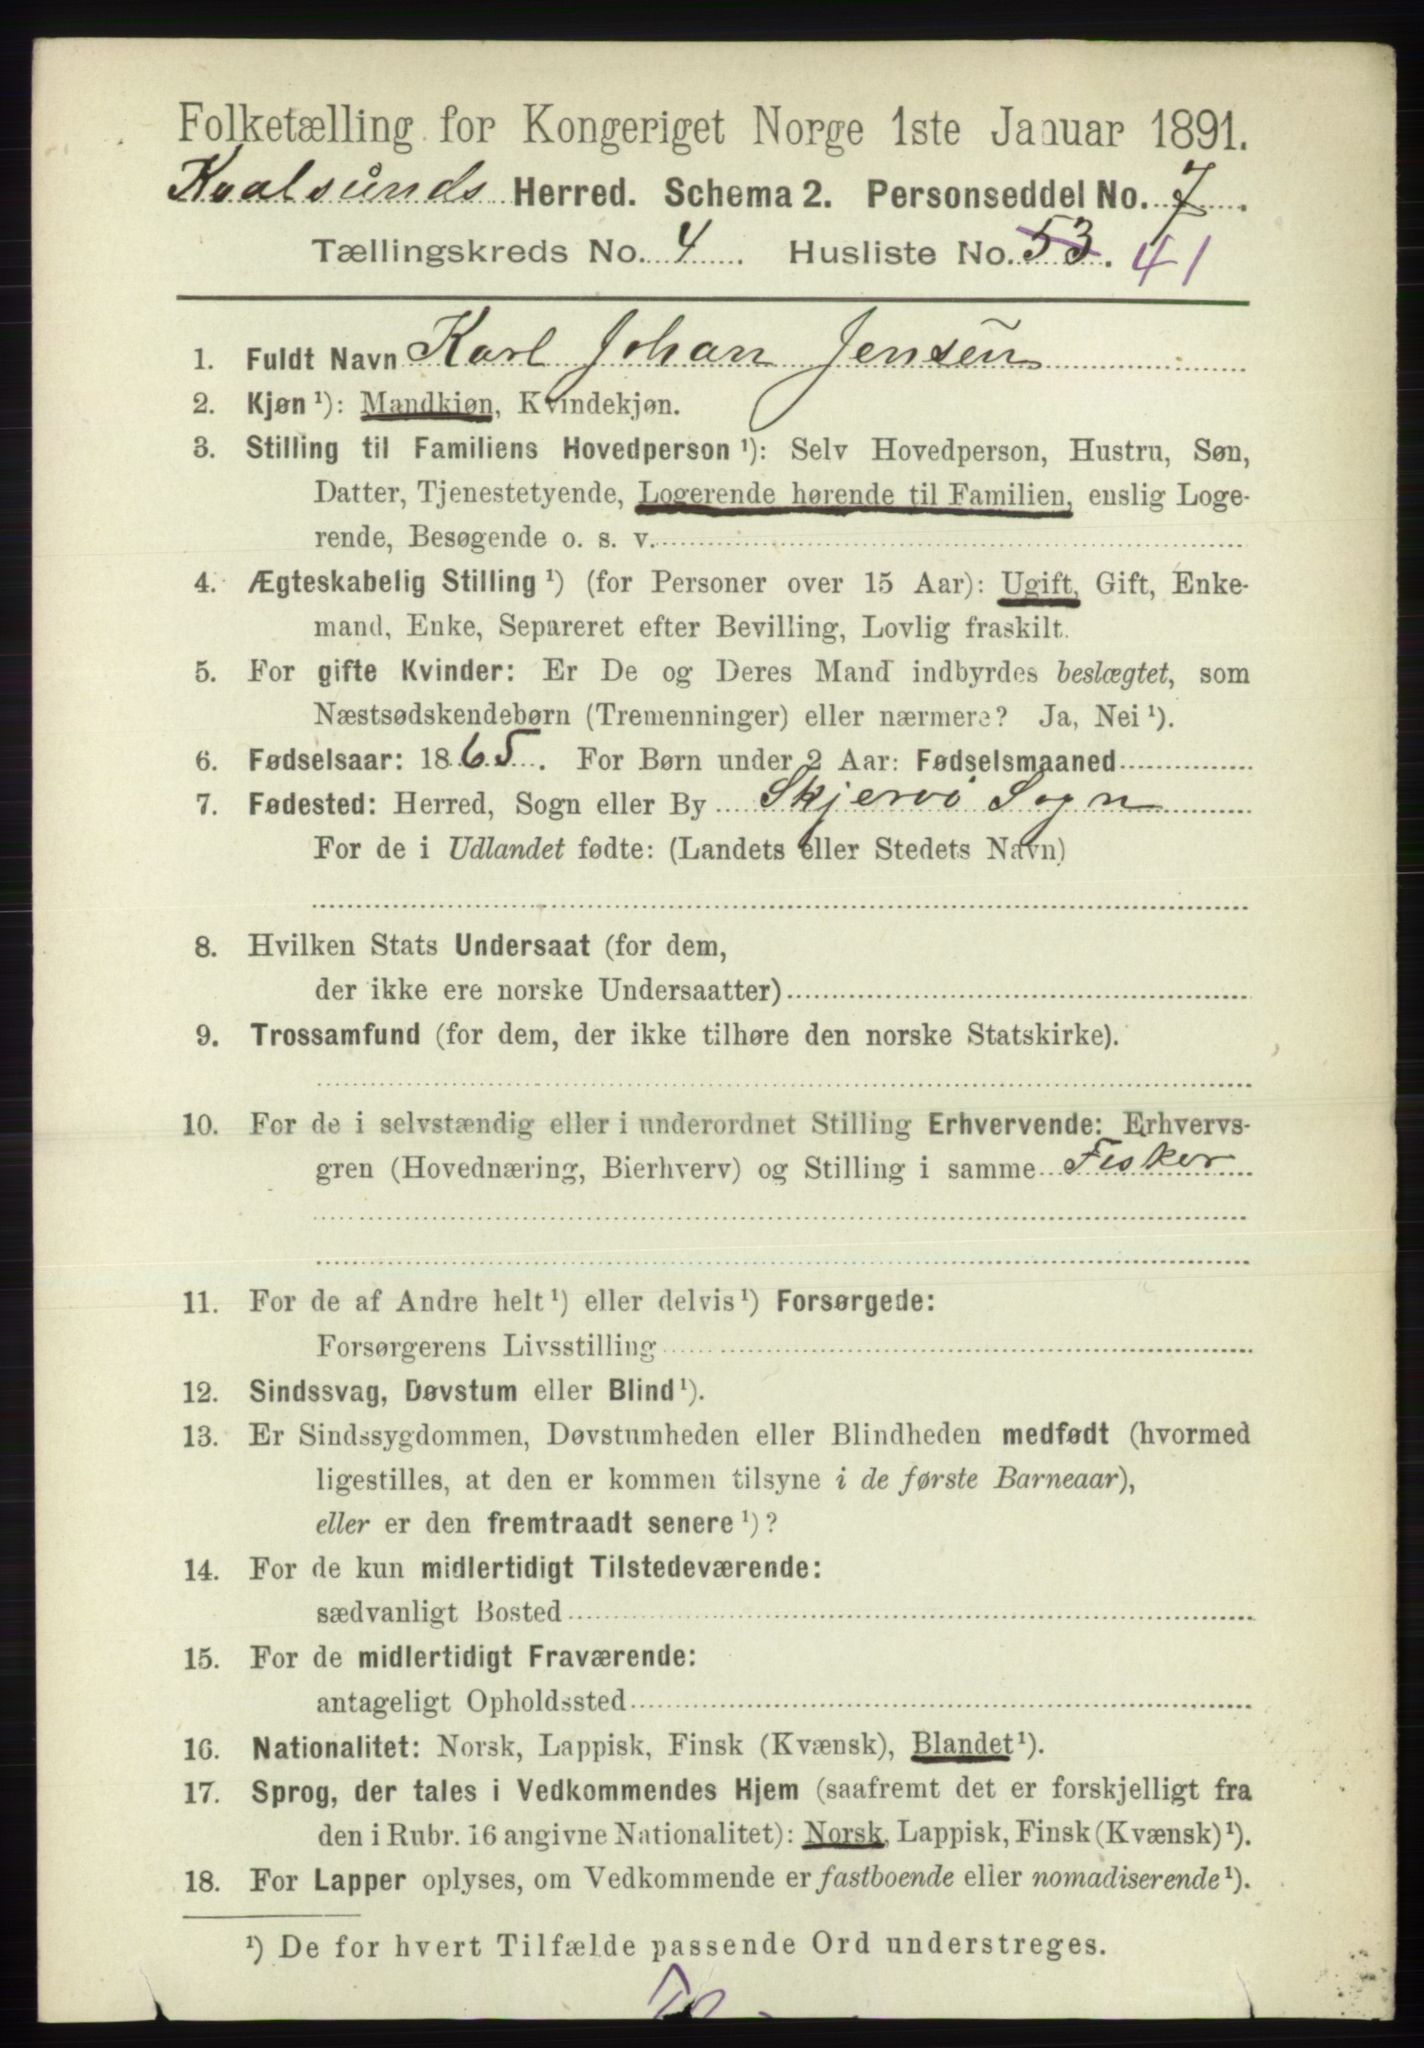 Folketælling for Kongeriget Norge 1ste Januar 1891.
Kvalsunds Herred. Schema 2. Personseddel No. 7.
Tællingskreds No. 4. Husliste No. 53. 41
1. Fuldt Navn Karl Johan Jensen
2. Kjøn ¹): Mandkjøn, Kvindekjøn.
3. Stilling til Familiens Hovedperson ¹): Selv Hovedperson, Hustru, Søn,
Datter, Tjenestetyende, Logerende hørende til Familien, enslig Loge-
rende, Besøgende o. s. v.
4. Ægteskabelig Stilling ¹) (for Personer over 15 Aar): Ugift, Gift, Enke-
mand, Enke, Separeret efter Bevilling, Lovlig fraskilt.
5. For gifte Kvinder: Er De og Deres Mand indbyrdes beslægtet, som
Næstsødskendebørn (Tremenninger) eller nærmere? Ja, Nei ¹).
6. Fødselsaar: 1865. For Børn under 2 Aar: Fødselsmaaned
7. Fødested: Herred, Sogn eller By Skjervö Sogn
For de i Udlandet fødte: (Landets eller Stedets Navn)
8. Hvilken Stats Undersaat (for dem,
der ikke ere norske Undersaatter)
9. Trossamfund (for dem, der ikke tilhøre den norske Statskirke).
10. For de i selvstændig eller i underordnet Stilling Erhvervende: Erhvervs-
gren (Hovednæring, Bierhverv) og Stilling i samme Fisker
11. For de af Andre helt ¹) eller delvis ¹) Forsørgede:
Forsørgerens Livsstilling
12. Sindssvag, Døvstum eller Blind ¹).
13. Er Sindssygdommen, Døvstumheden eller Blindheden medfødt (hvormed
ligestilles, at den er kommen tilsyne i de første Barneaar),
eller er den fremtraadt senere ¹)?
14. For de kun midlertidigt Tilstedeværende:
sædvanligt Bosted
15. For de midlertidigt Fraværende:
antageligt Opholdssted
16. Nationalitet: Norsk, Lappisk, Finsk (Kvænsk), Blandet ¹).
17. Sprog, der tales i Vedkommendes Hjem (saafremt det er forskjelligt fra
den i Rubr. 16 angivne Nationalitet): Norsk, Lappisk, Finsk (Kvænsk) ¹).
18. For Lapper oplyses, om Vedkommende er fastboende eller nomadiserende ¹).
¹) De for hvert Tilfælde passende Ord understreges.